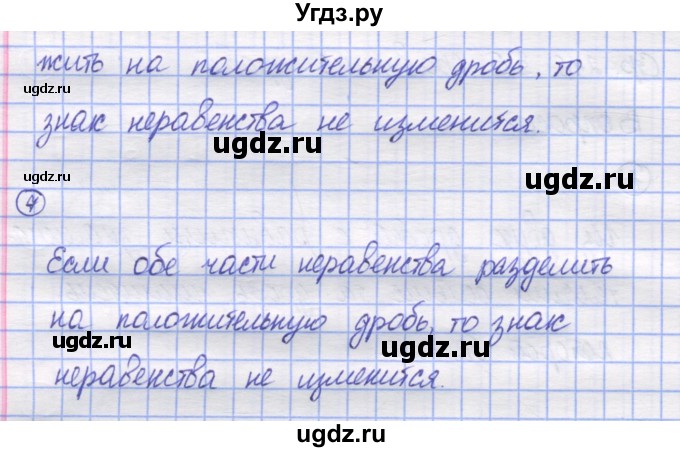 Угдз.ру
жить на положительную дробь, то
ugdz.ru
ugdz.ru
знак неравенства не изменится.
ugdz.ru
ugdz.ru
ugdz.ru
4
Если обе части неравенства разделить
ugdz.ru
на положительную дробь, то знак
ugdz.ru
ugdz.ru
неравенства не изменится.
ugdz.ru
ugdz.ru